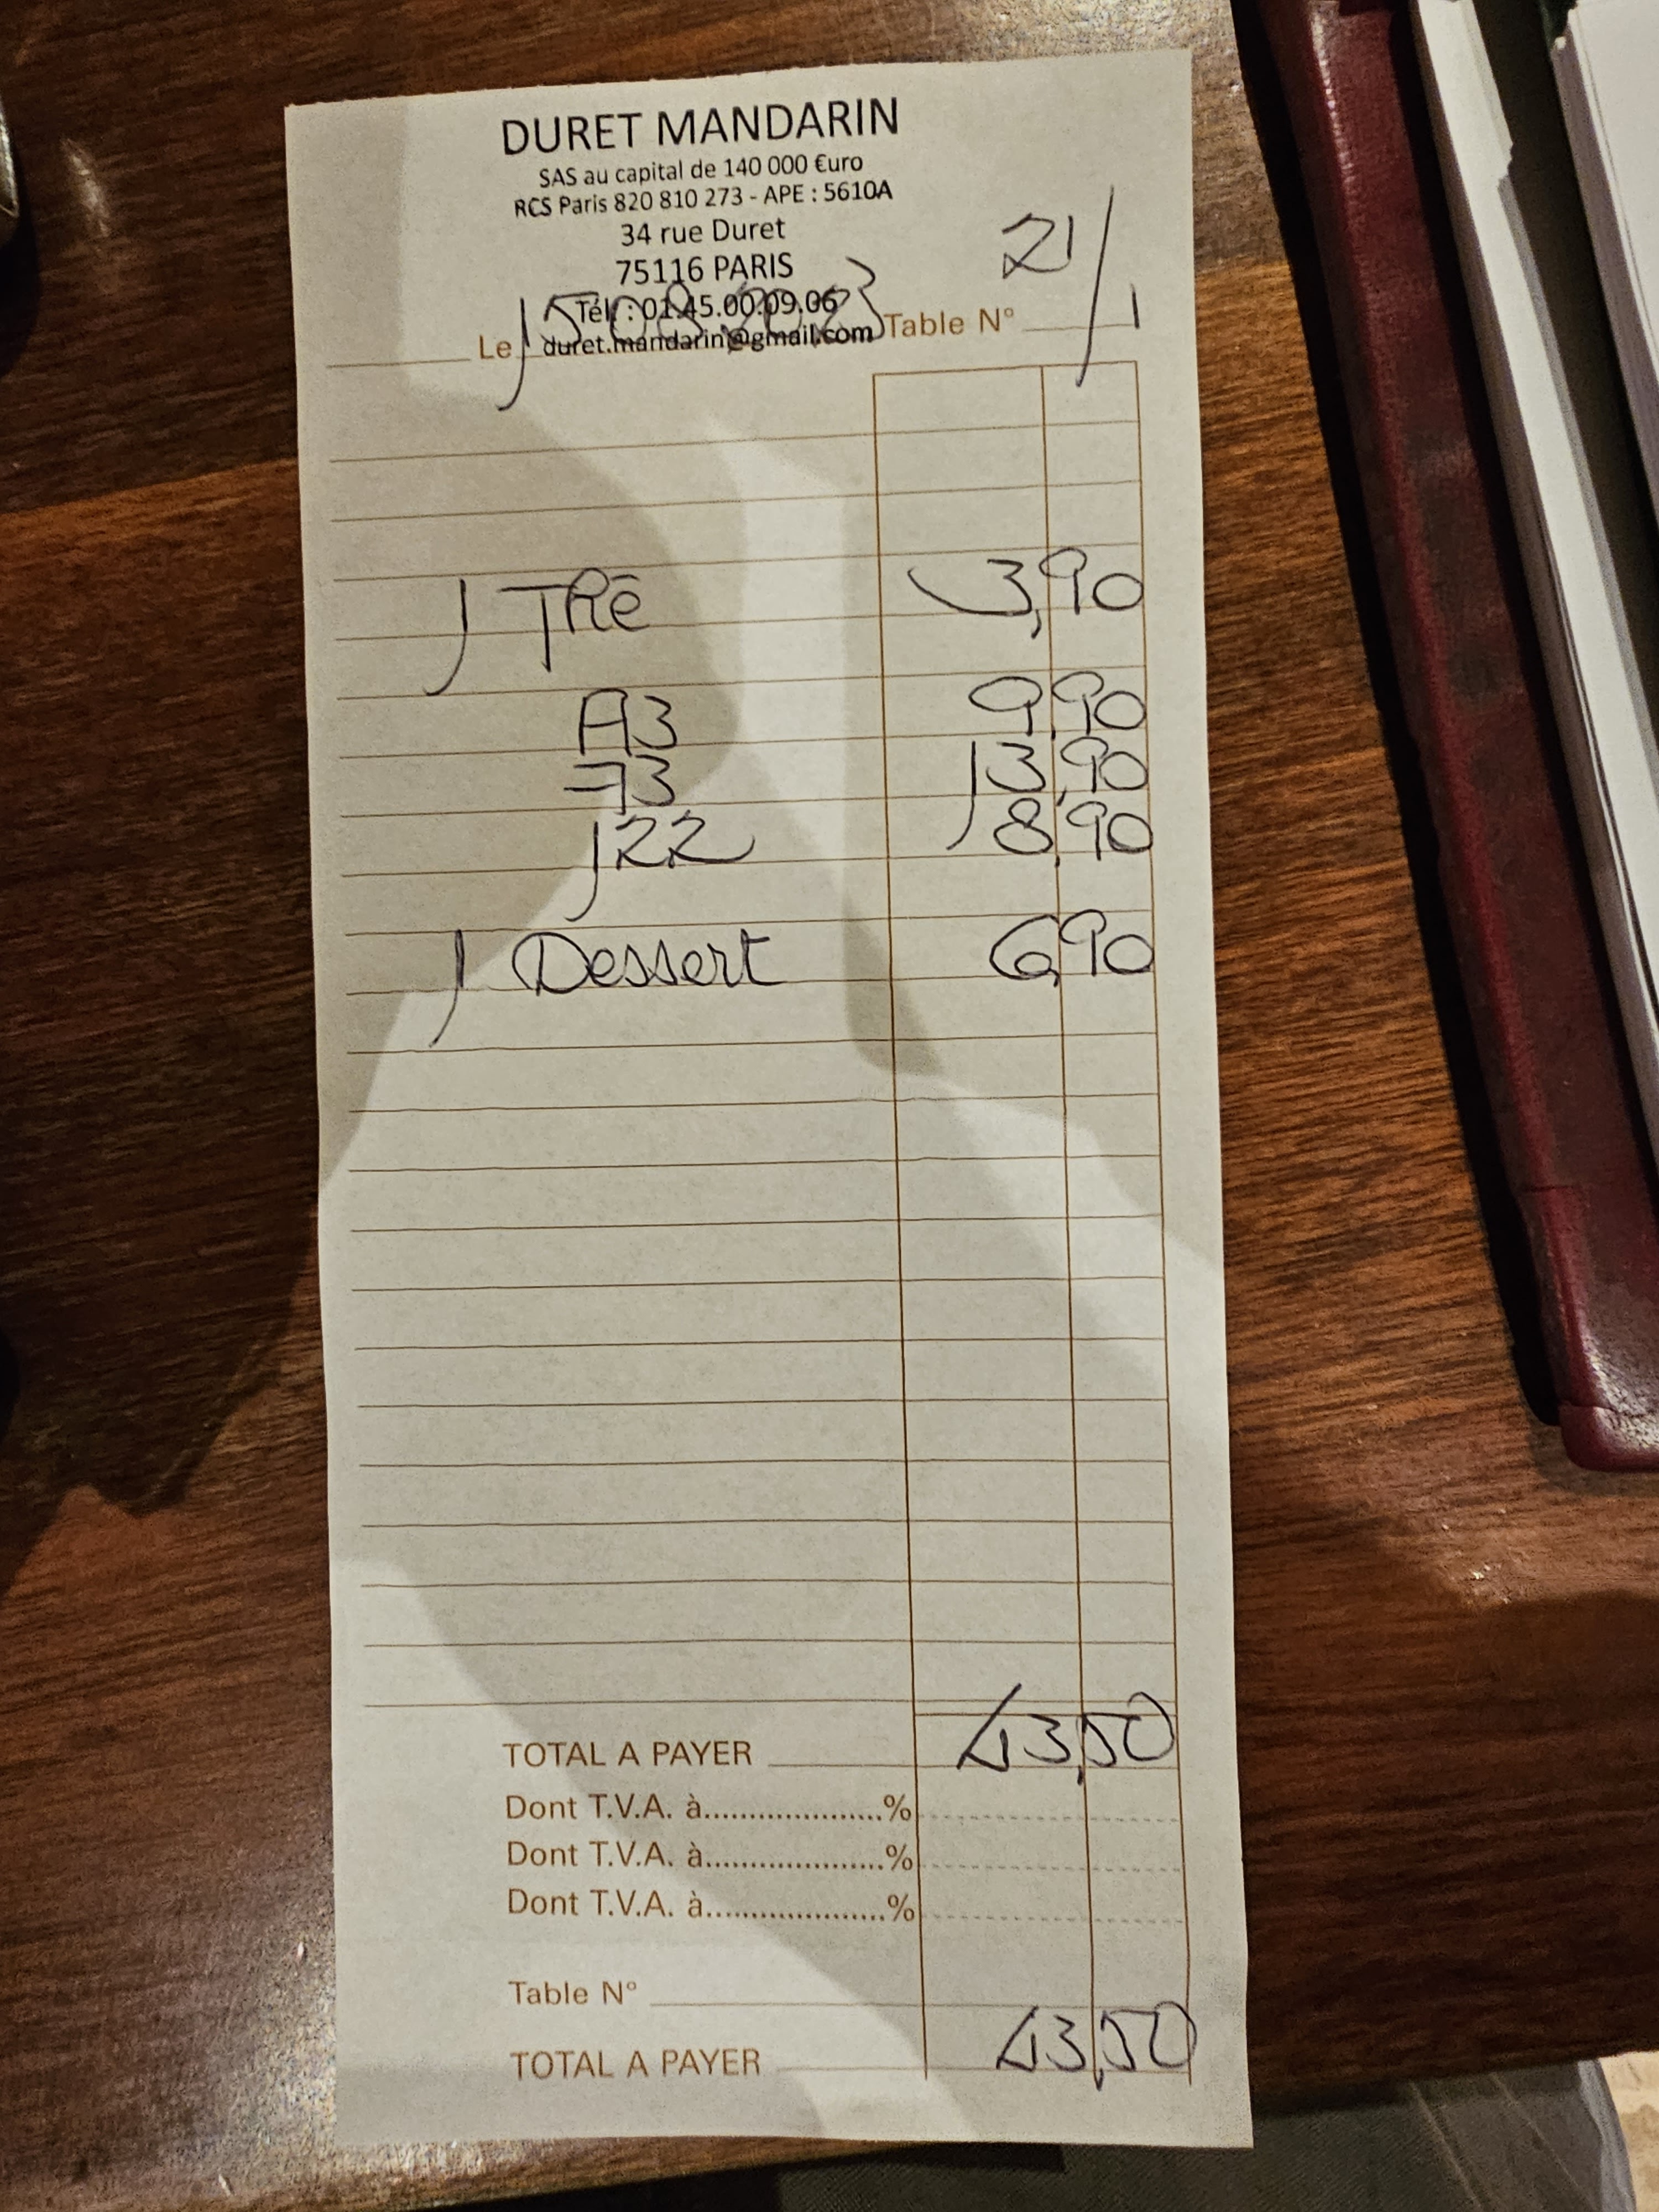 DURET MANDARIN
SAS au capital de 140 000 €uro
RCS Paris 820 810 273 - APE : 5610A
34 rue Duret
75116 PARIS
Tél : 01.45.00.09.06
duret.mandarin@gmail.com
Le 15.08.2023 Table N° 21/1
1 Thé 3,90
A3 9,90
13,90
122 8,90
1 Dessert 6,90
TOTAL A PAYER 43,50
Dont T.V.A. à....................%
Dont T.V.A. à....................%
Dont T.V.A. à....................%
Table N°
TOTAL A PAYER 43,50